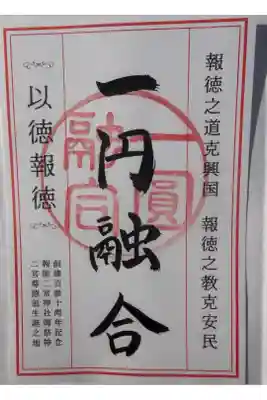 報徳之道克興国 報徳之教克安民
一円融合
一圓融合
以徳報徳
創建百十周年記念
報徳二宮神社御祭神
二宮尊徳翁生誕之地